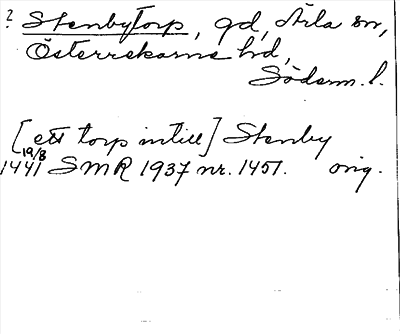 ? Stenbytorp, gd, Ärla sn,
Österrekarne hd,
Söderm. l.
[ett torp intill] Stenby
19/8
1441 SMR 1937 nr. 1451. orig.